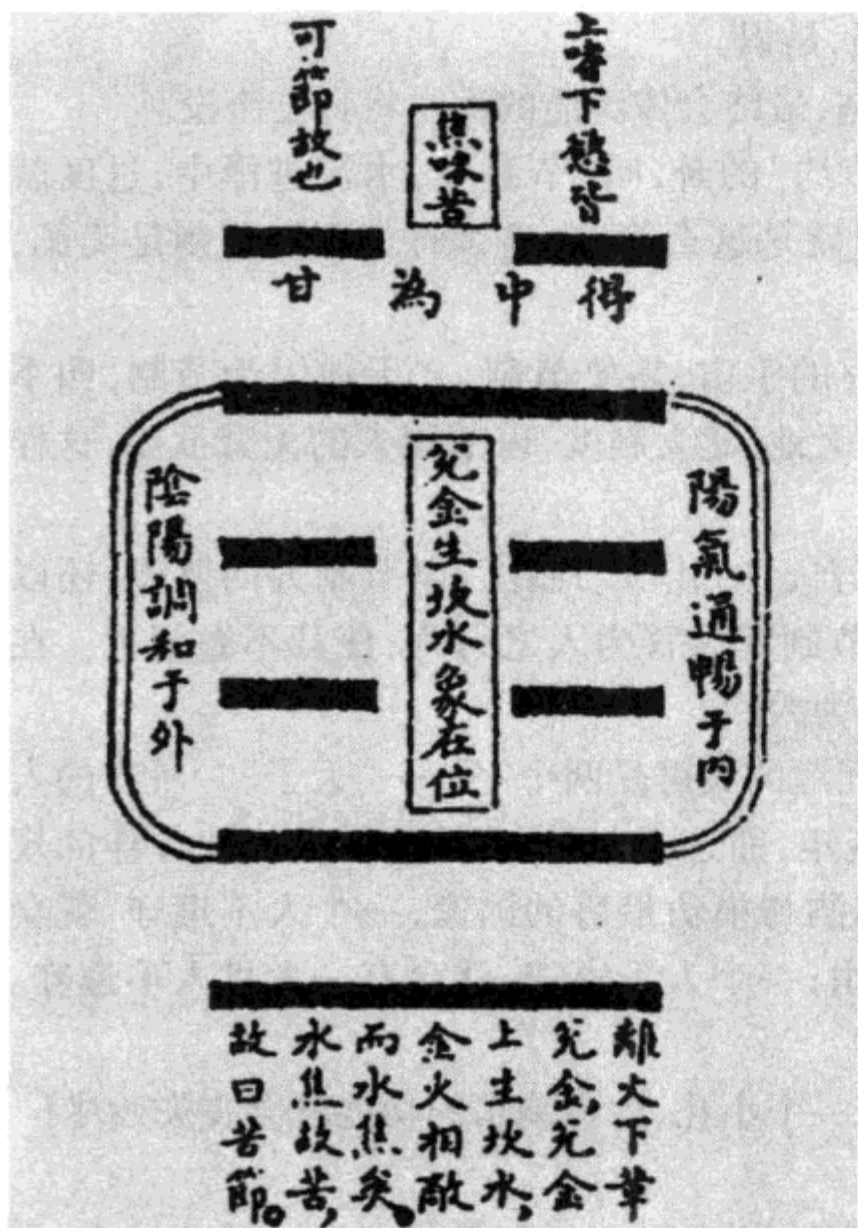 上嗜下慾皆
焦味苦
可節故也
得中為甘
陽氣通暢于內
兌金生坎水象在位
陰陽調和于外
離火下革
兌金,兌金
上生坎水,
金火相敵
而水焦矣。
水焦故苦,
故曰苦節。